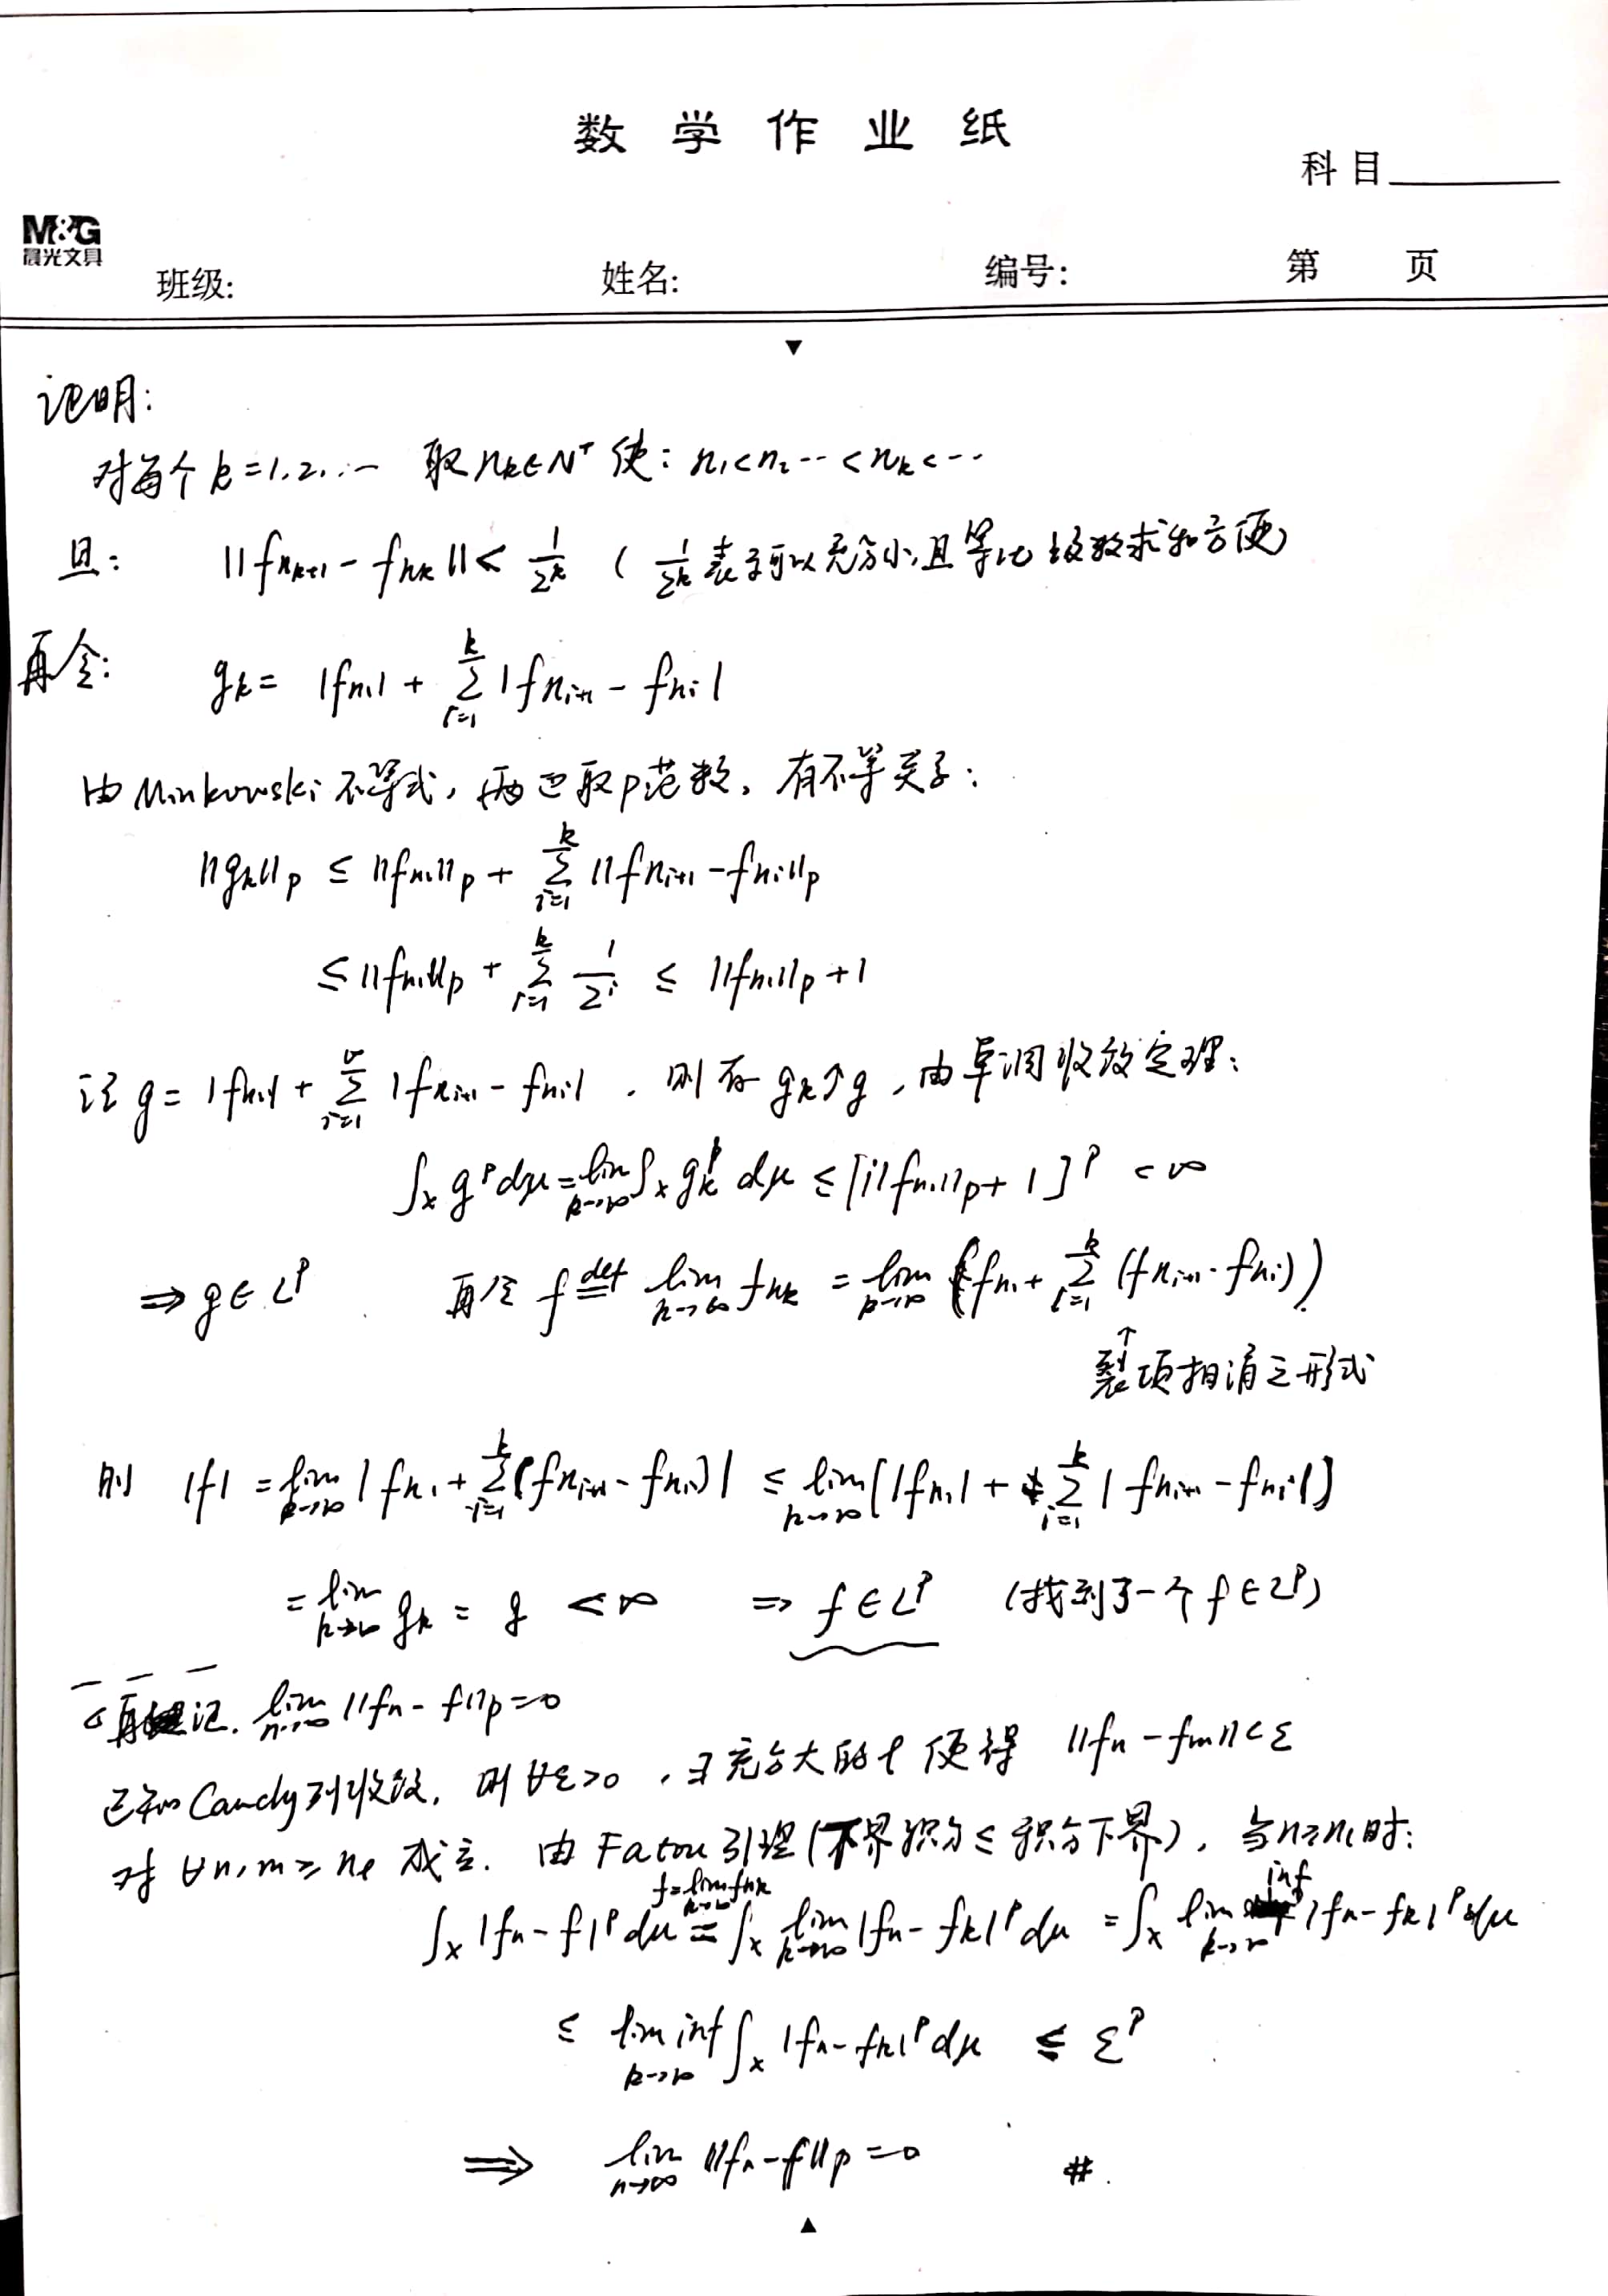 数学作业纸
科目
M&G
晨光文具
班级: 姓名: 编号: 第 页
证明:
对每个 k=1,2,… 取 n_k∈N⁺ 使: n₁<n₂…<n_k<…
且: ||f_{n_{k+1}} - f_{n_k}|| < 1/2^k ( 1/2^k 表示可以充分小,且等比级数求和方便)
再令: g_k = |f_{n_1}| + Σ_{i=1}^{k} |f_{n_{i+1}} - f_{n_i}|
由 Minkowski 不等式, 两边取p范数, 有不等关系:
||g_k||_p ≤ ||f_{n_1}||_p + Σ_{i=1}^{k} ||f_{n_{i+1}} - f_{n_i}||_p
≤ ||f_{n_1}||_p + Σ_{i=1}^{k} 1/2^i ≤ ||f_{n_1}||_p + 1
记 g = |f_{n_1}| + Σ_{i=1}^{∞} |f_{n_{i+1}} - f_{n_i}| , 则有 g_k↑g , 由单调收敛定理:
∫_X g^p dμ = lim_{k→∞} ∫_X g_k^p dμ ≤ [||f_{n_1}||_p + 1]^p < ∞
⇒ g∈L^p 再令 f ≝ lim_{k→∞} f_{n_k} = lim_{k→∞} (f_{n_1} + Σ_{i=1}^{k} (f_{n_{i+1}} - f_{n_i}))
↑
裂项相消之形式
则 |f| = lim_{k→∞} |f_{n_1} + Σ_{i=1}^{k} (f_{n_{i+1}} - f_{n_i})| ≤ lim_{k→∞} [|f_{n_1}| + Σ_{i=1}^{k} |f_{n_{i+1}} - f_{n_i}|]
= lim_{k→∞} g_k = g < ∞ ⇒ f∈L^p (找到了一个 f∈L^p)
再证. lim_{n→∞} ||f_n - f||_p = 0
已知 Cauchy列收敛, 则 ∀ε>0 , ∃充分大的 l 使得 ||f_n - f_m|| < ε
对 ∀n,m ≥ n_l 成立. 由 Fatou 引理 (下界积分≤积分下界), 当 n≥n_l 时:
f=lim_{k→∞} f_{nk}
∫_X |f_n - f|^p dμ = ∫_X lim_{k→∞} |f_n - f_k|^p dμ = ∫_X lim inf_{k→∞} |f_n - f_k|^p dμ
≤ lim inf_{k→∞} ∫_X |f_n - f_k|^p dμ ≤ ε^p
⇒ lim_{n→∞} ||f_n - f||_p = 0 #.